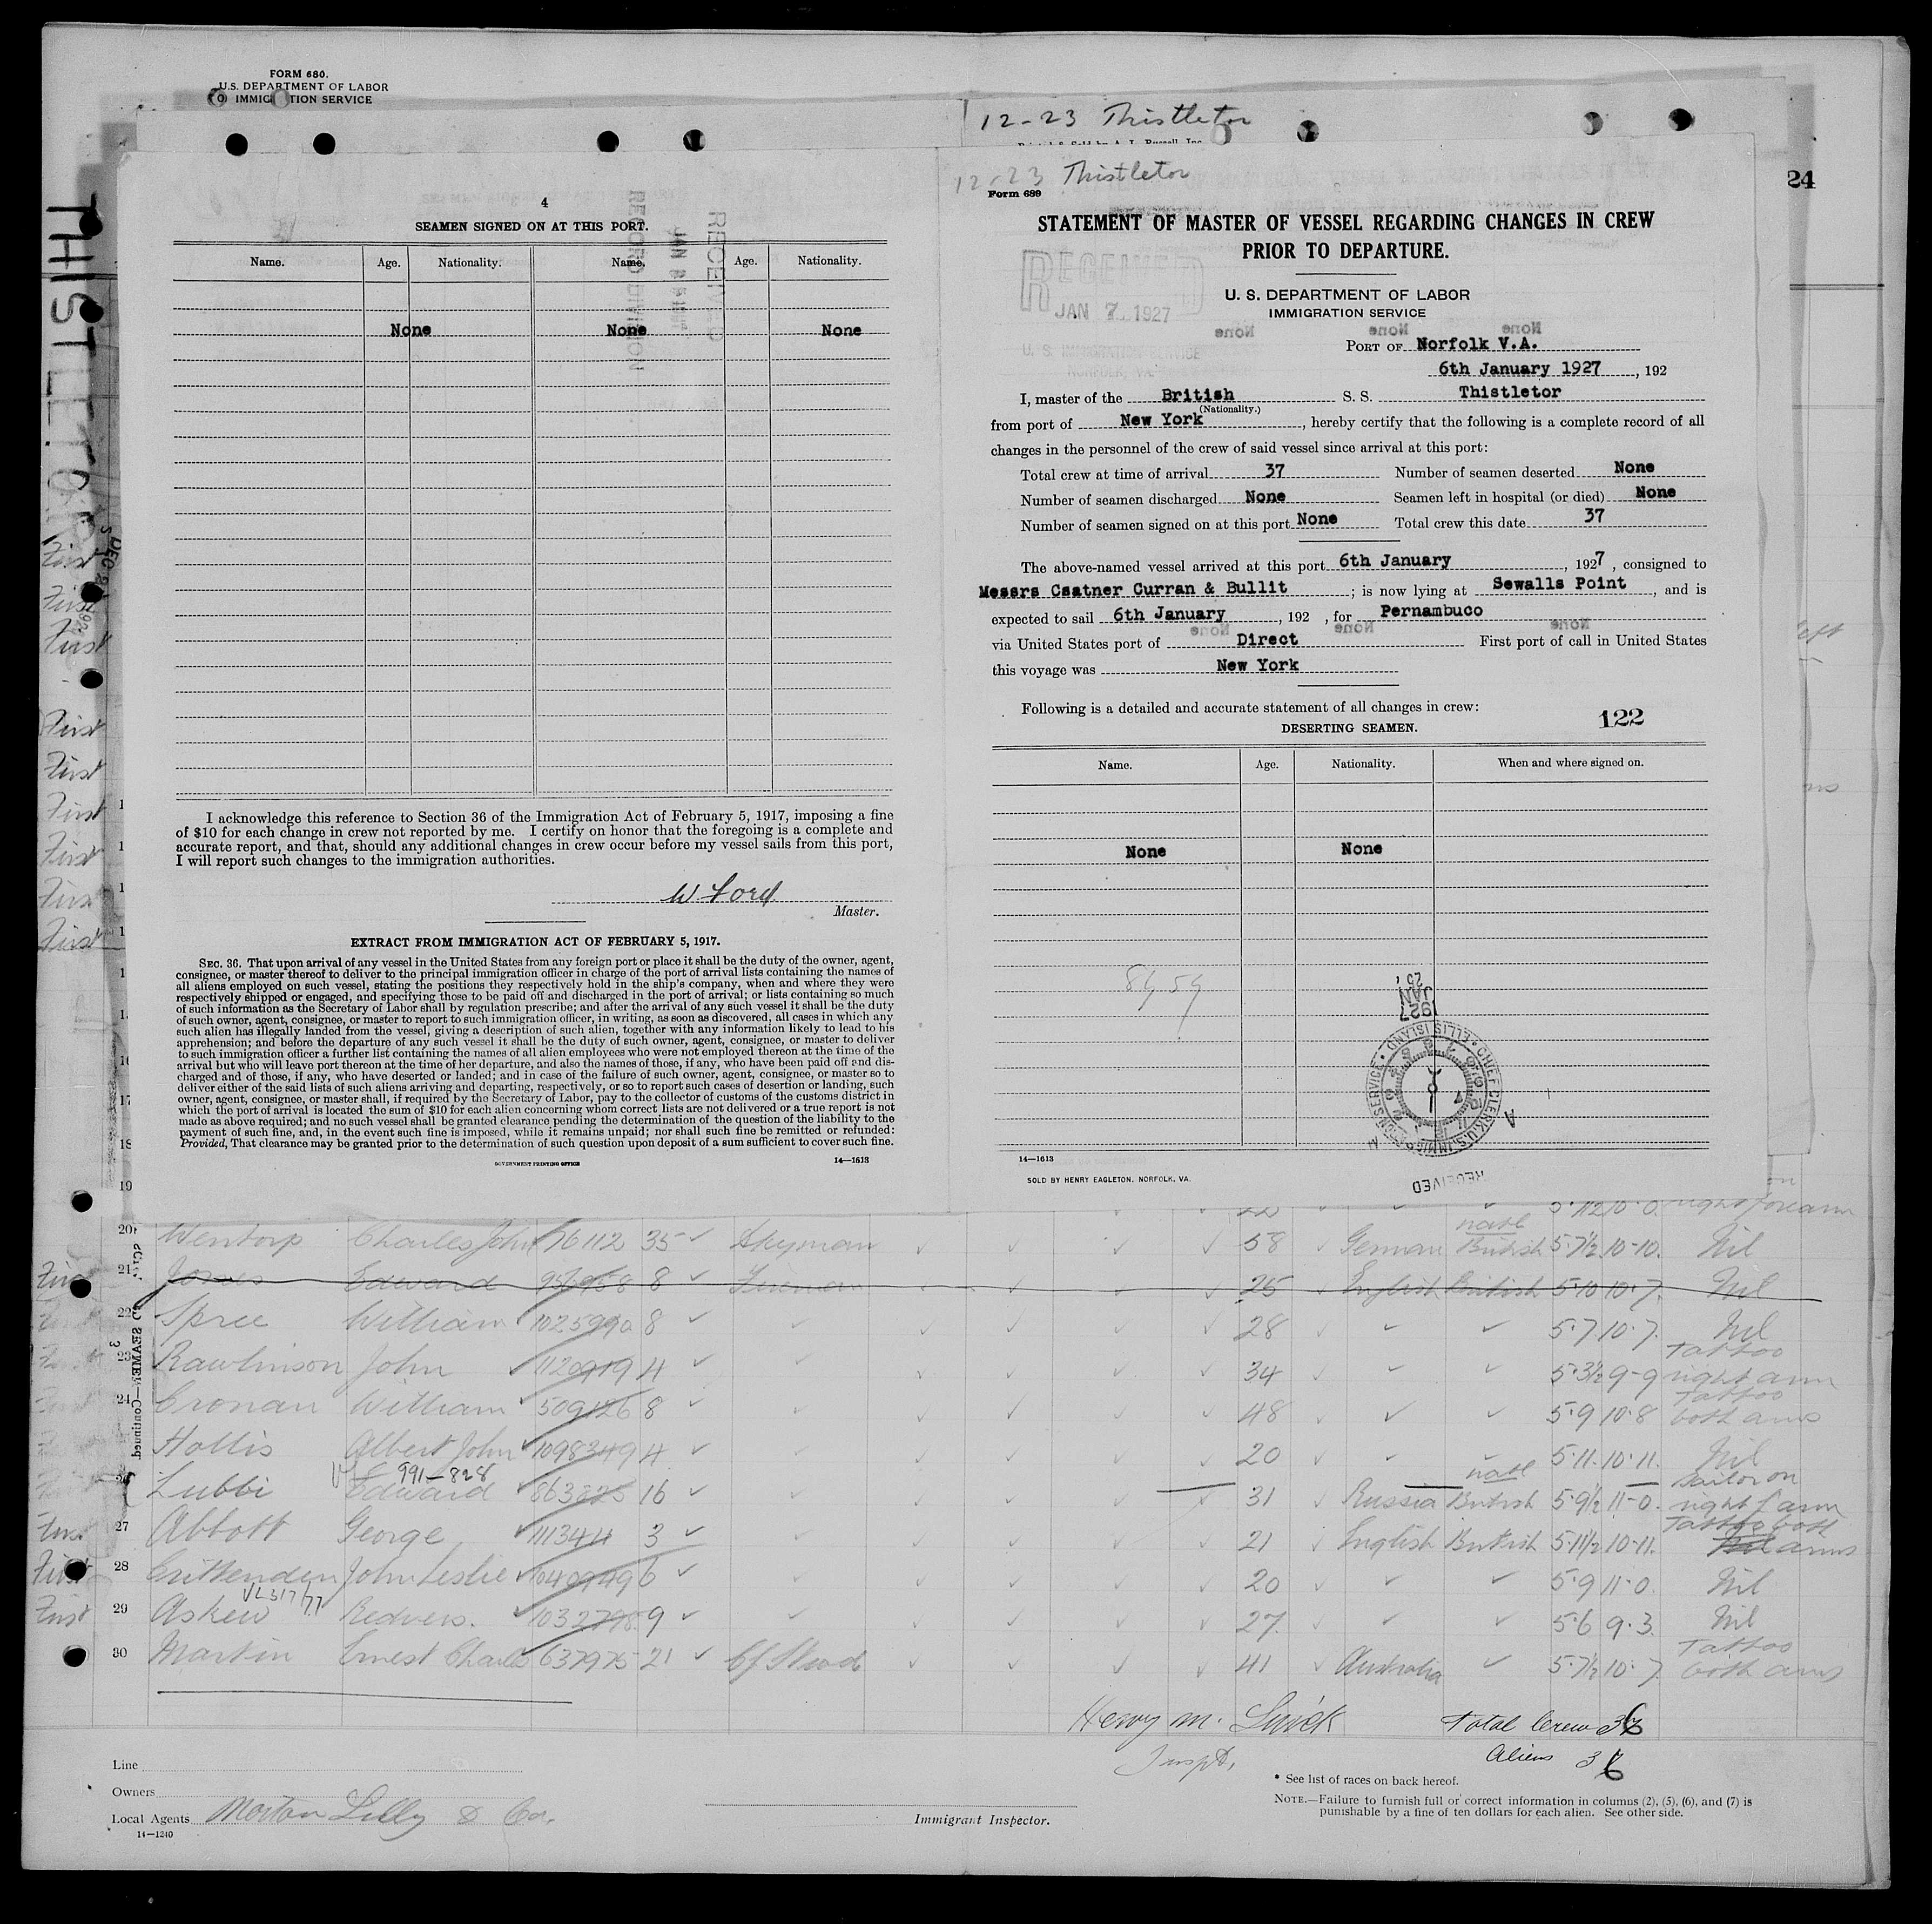 FORM 680.
U.S. DEPARTMENT OF LABOR
IMMIGRATION SERVICE
12-23 Thistletor
24
THISTLETOR
4
SEAMEN SIGNED ON AT THIS PORT.
Name. Age. Nationality. Name. Age. Nationality.
None None None
RECEIVED
RECORD DIVISION
I acknowledge this reference to Section 36 of the Immigration Act of February 5, 1917, imposing a fine
of $10 for each change in crew not reported by me. I certify on honor that the foregoing is a complete and
accurate report, and that, should any additional changes in crew occur before my vessel sails from this port,
I will report such changes to the immigration authorities.
W Ford
Master.
EXTRACT FROM IMMIGRATION ACT OF FEBRUARY 5, 1917.
SEC. 36. That upon arrival of any vessel in the United States from any foreign port or place it shall be the duty of the owner, agent,
consignee, or master thereof to deliver to the principal immigration officer in charge of the port of arrival lists containing the names of
all aliens employed on such vessel, stating the positions they respectively hold in the ship's company, when and where they were
respectively shipped or engaged, and specifying those to be paid off and discharged in the port of arrival; or lists containing so much
of such information as the Secretary of Labor shall by regulation prescribe; and after the arrival of any such vessel it shall be the duty
of such owner, agent, consignee, or master to report to such immigration officer, in writing, as soon as discovered, all cases in which any
such alien has illegally landed from the vessel, giving a description of such alien, together with any information likely to lead to his
apprehension; and before the departure of any such vessel it shall be the duty of such owner, agent, consignee, or master to deliver
to such immigration officer a further list containing the names of all alien employees who were not employed thereon at the time of the
arrival but who will leave port thereon at the time of her departure, and also the names of those, if any, who have been paid off and dis-
charged and of those, if any, who have deserted or landed; and in case of the failure of such owner, agent, consignee, or master so to
deliver either of the said lists of such aliens arriving and departing, respectively, or so to report such cases of desertion or landing, such
owner, agent, consignee, or master shall, if required by the Secretary of Labor, pay to the collector of customs of the customs district in
which the port of arrival is located the sum of $10 for each alien concerning whom correct lists are not delivered or a true report is not
made as above required; and no such vessel shall be granted clearance pending the determination of the question of the liability to the
payment of such fine, and, in the event such fine is imposed, while it remains unpaid; nor shall such fine be remitted or refunded:
Provided, That clearance may be granted prior to the determination of such question upon deposit of a sum sufficient to cover such fine.
GOVERNMENT PRINTING OFFICE 14—1613
12-23 Thistletor
Form 689
STATEMENT OF MASTER OF VESSEL REGARDING CHANGES IN CREW
PRIOR TO DEPARTURE.
U. S. DEPARTMENT OF LABOR
IMMIGRATION SERVICE
RECEIVED
JAN 7 1927
U. S. IMMIGRATION SERVICE
NORFOLK, VA.
PORT OF Norfolk V.A.
6th January 1927, 192
I, master of the British S. S. Thistletor
(Nationality.)
from port of New York, hereby certify that the following is a complete record of all
changes in the personnel of the crew of said vessel since arrival at this port:
Total crew at time of arrival 37 Number of seamen deserted None
Number of seamen discharged None Seamen left in hospital (or died) None
Number of seamen signed on at this port None Total crew this date 37
The above-named vessel arrived at this port 6th January, 1927, consigned to
Messrs Csatner Curran & Bullit; is now lying at Sewalls Point, and is
expected to sail 6th January, 192 , for Pernambuco
via United States port of Direct First port of call in United States
this voyage was New York
Following is a detailed and accurate statement of all changes in crew:
122
DESERTING SEAMEN.
Name. Age. Nationality. When and where signed on.
None None
1927
JAN
25
CHIEF CLERK, U.S. IMMIGRATION SERVICE • ELLIS ISLAND •
RECEIVED
14—1613
SOLD BY HENRY EAGLETON, NORFOLK, VA.
20 Wentorp Charles John 76112 35 58 German natl British 5·7½ 10-10. Nil
21 Jones Edward 8 Fireman 25 English British 5·10 10·7. Nil
22 Spree William 8 28 5·7 10·7. Nil
23 Rawlinson John 1120919 4 34 5·3½ 9-9 Tattoo right arm
24 Cronan William 509126 8 48 5·9 10·8 Tattoo both arms
Hollis Albert John 1098349 4 20 5·11. 10·11. Nil
991-828
Lubbi Edward 16 31 Russia natl British 5·9½ 11-0. Sailor on right f arm
27 Abbott George 3 21 English British 5·11½ 10-11. Tattoo both arms
28 Crittenden John Leslie 6 20 5·9 11-0. Nil
29 Askew Redvers. 9 27. 5·6 9·3. Nil
30 Martin Ernest Charles 637975 21 41 Australia 5·7½ 10·7. Tattoo both arms
Henry M. Total Crew 36
Inspt, Aliens 36
Line
Owners
Local Agents Morton Lilly & Co.
14—1240
Immigrant Inspector.
* See list of races on back hereof.
NOTE.—Failure to furnish full or correct information in columns (2), (5), (6), and (7) is
punishable by a fine of ten dollars for each alien. See other side.